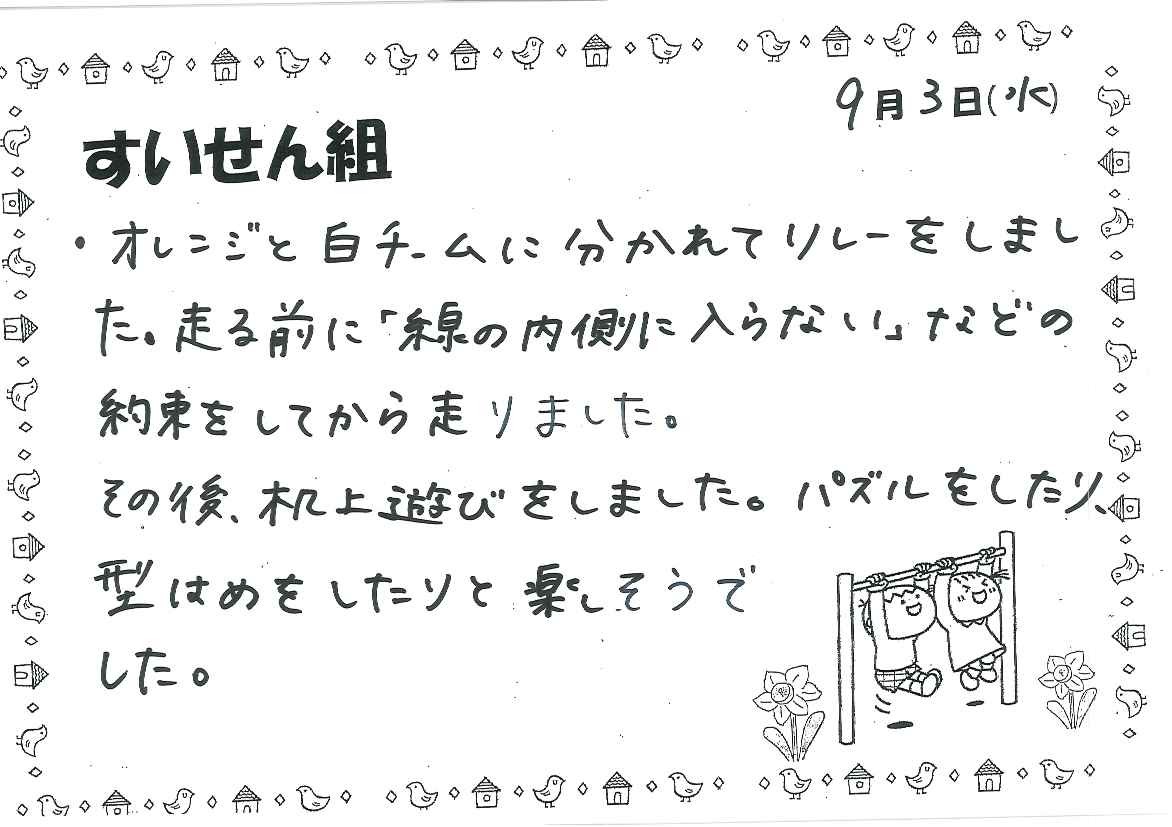 9月3日(水)
すいせん組
・オレンジと白チームに分かれてリレーをしまし
た。走る前に「線の内側に入らない」などの
約束をしてから走りました。
その後、机上遊びをしました。パズルをしたり、
型はめをしたりと楽しそうで
した。